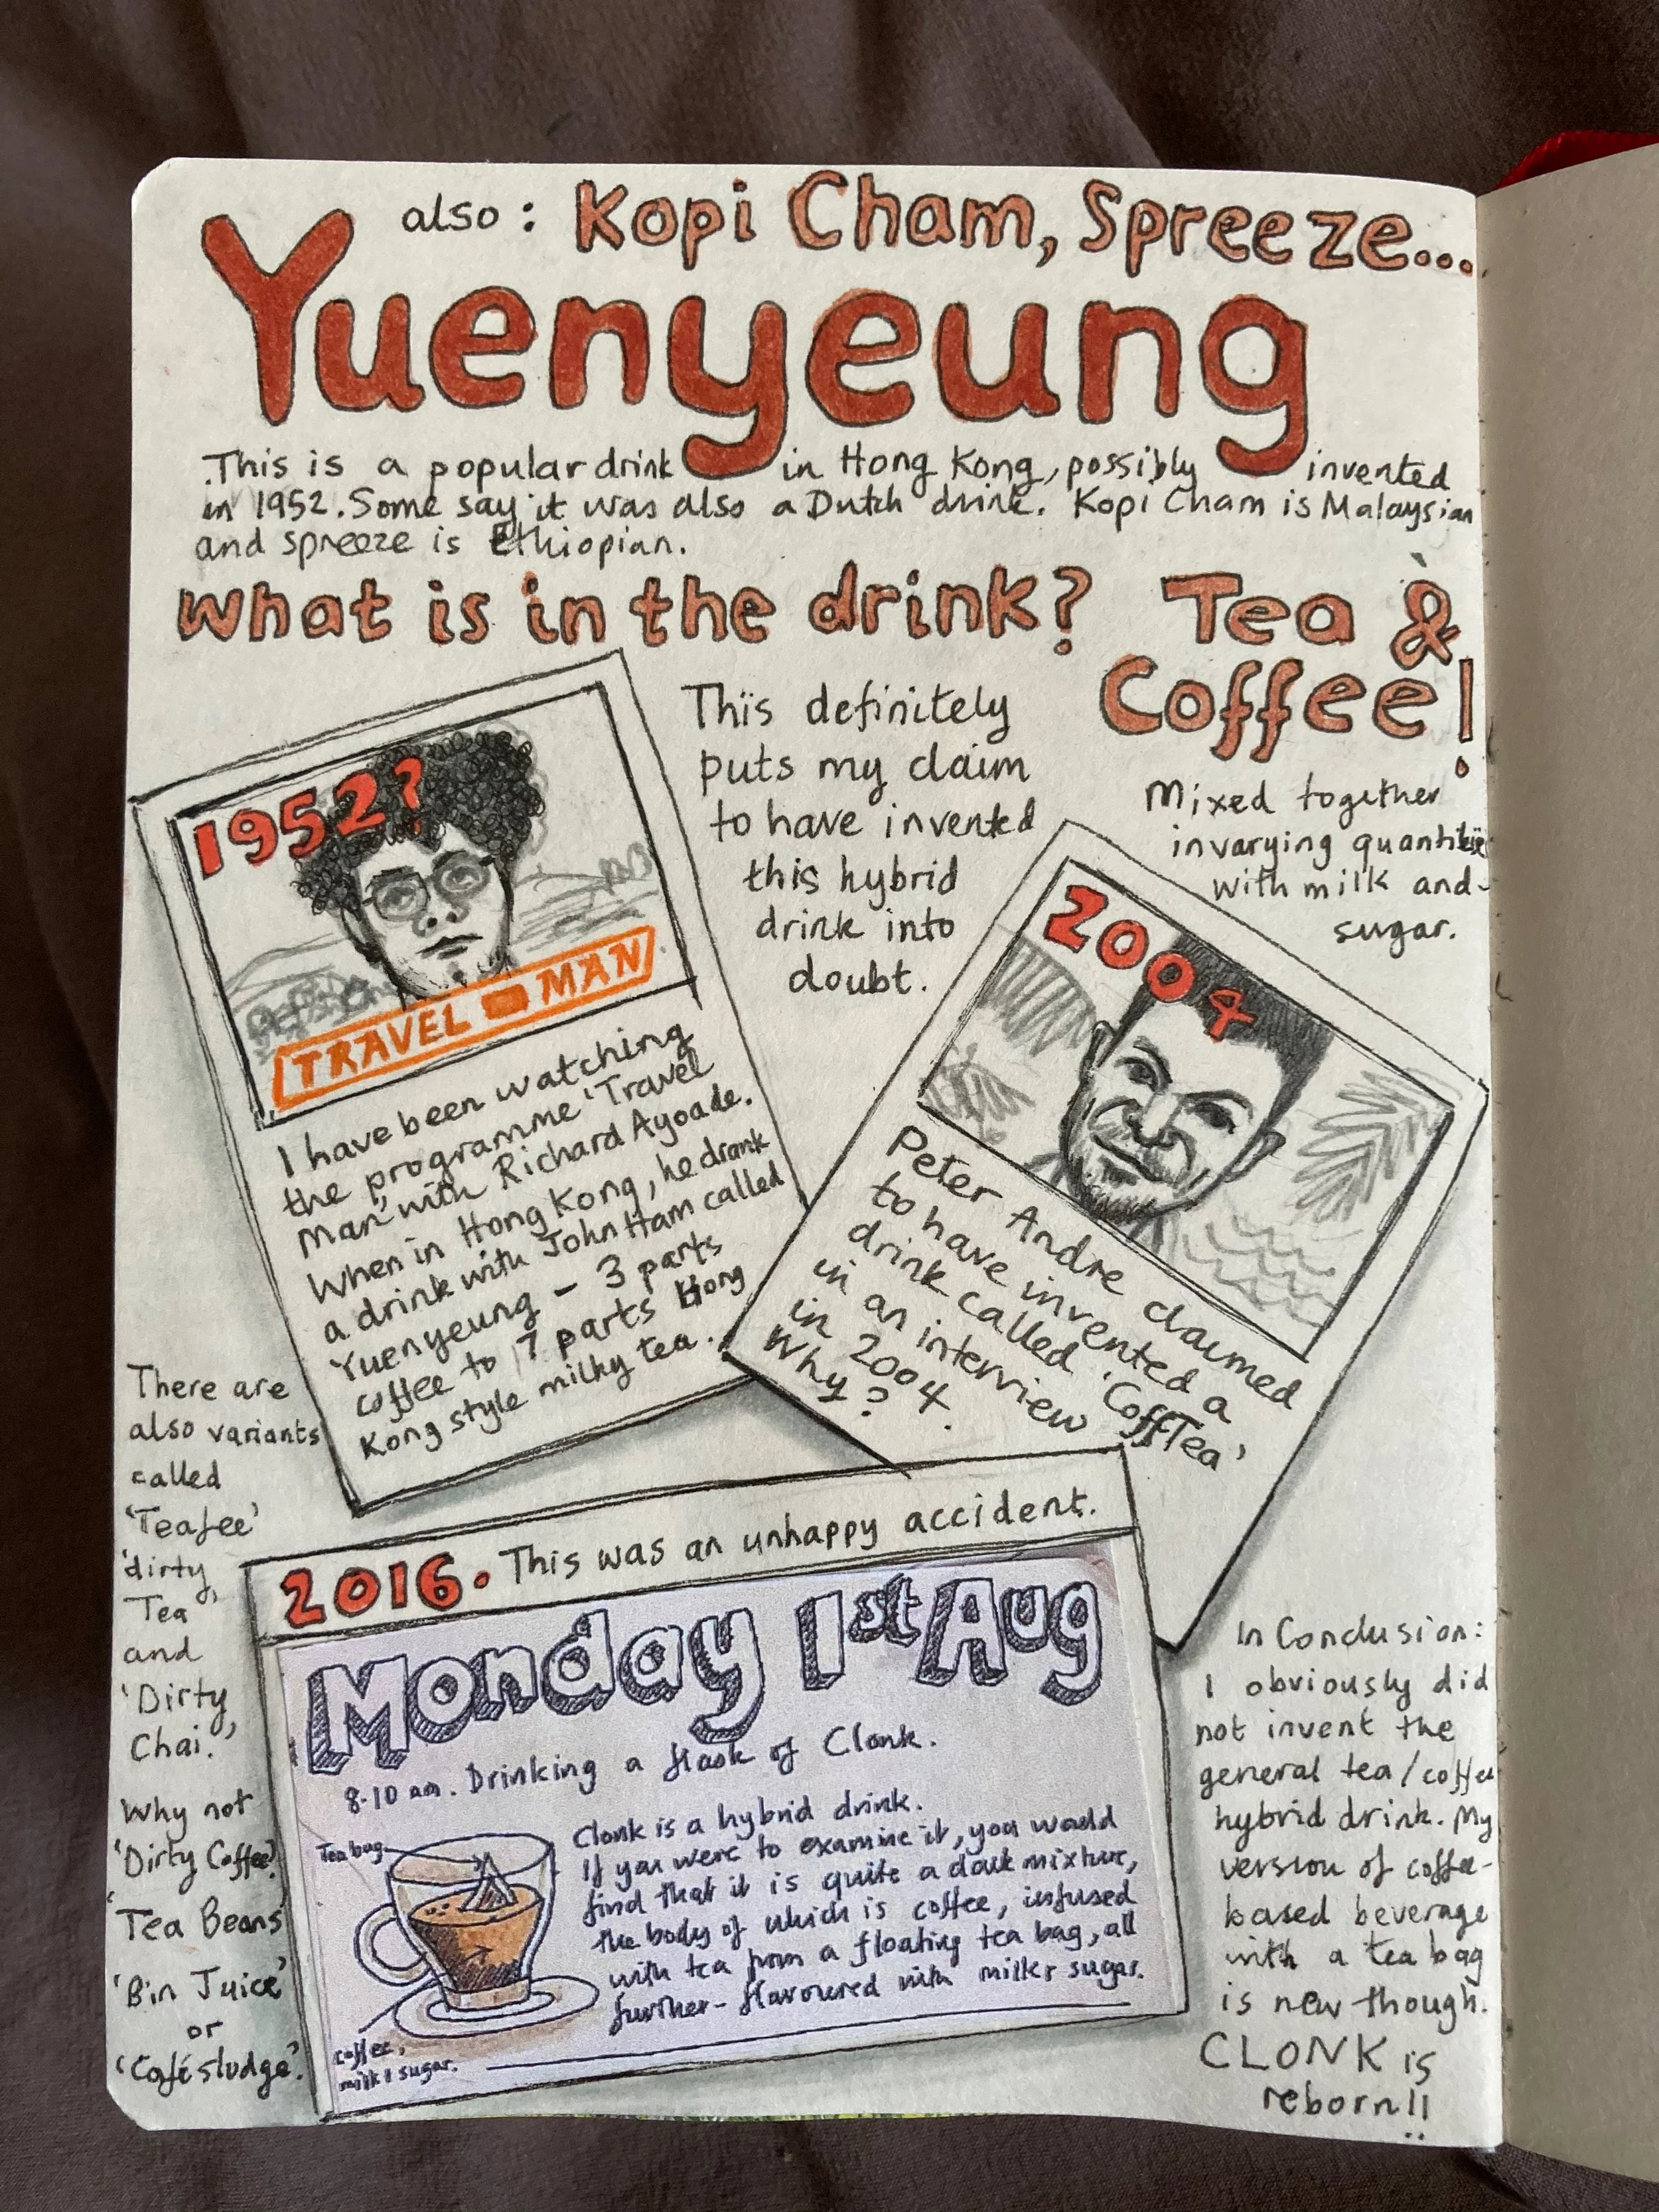 also: Kopi Cham, Spreeze...
Yuenyeung
This is a popular drink in Hong Kong, possibly invented
in 1952. Some say it was also a Dutch drink. Kopi Cham is Malaysian
and spreeze is Ethiopian.
What is in the drink? Tea &
Coffee!
Mixed together
in varying quantities
with milk and
sugar.
This definitely
puts my claim
to have invented
this hybrid
drink into
doubt.
1952?
TRAVEL MAN
I have been watching
the programme 'Travel
Man' with Richard Ayoade.
When in Hong Kong, he drank
a drink with John Ham called
Yuenyeung - 3 parts
coffee to 7 parts Hong
Kong style milky tea.
2004
Peter Andre claimed
to have invented a
drink called 'CoffTea'
in an interview
in 2004.
Why?
There are
also variants
called
'Teafee'
'dirty
Tea'
and
'Dirty
Chai.'
Why not
'Dirty Coffee'
'Tea Beans'
'Bin Juice'
or
'Café sludge'.
2016. This was an unhappy accident.
Monday 1st Aug
8.10 am. Drinking a flask of Clonk.
Clonk is a hybrid drink.
If you were to examine it, you would
find that it is quite a dark mixture,
the body of which is coffee, infused
with tea from a floating tea bag, all
further-flavoured with milk & sugar.
Tea bag
Coffee,
milk & sugar.
In Conclusion:
I obviously did
not invent the
general tea/coffee
hybrid drink. My
version of coffee-
based beverage
with a tea bag
is new though.
CLONK is
reborn!!